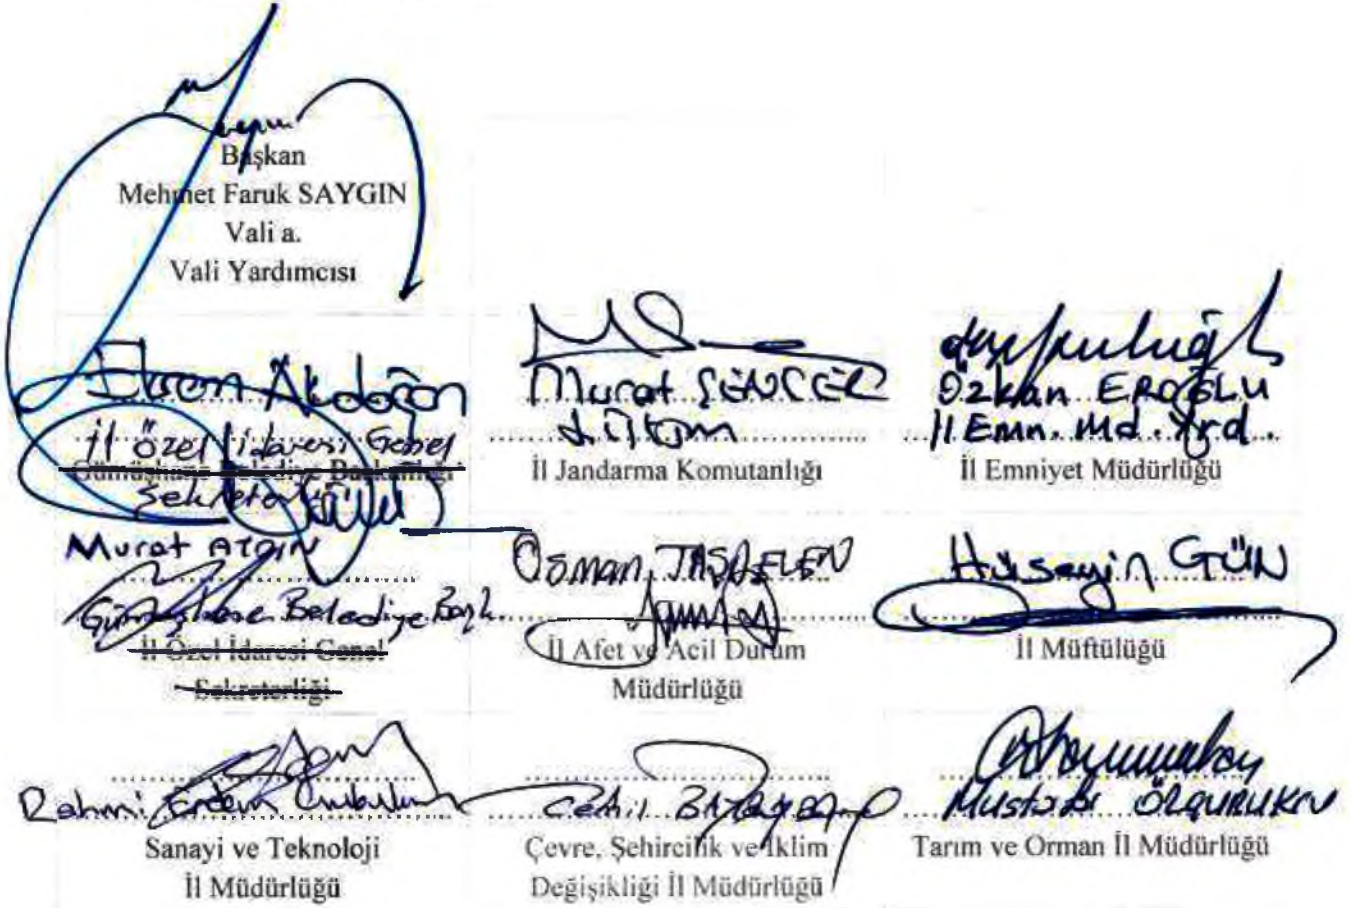 Başkan
Mehmet Faruk SAYGIN
Vali a.
Vali Yardımcısı
Akdoğan
İl Özel İdaresi Genel
Gümüşhane Belediye Başkanlığı
Murat ŞENCER
İl Jandarma Komutanlığı
Özkan EROĞLU
İl Emn. Md. Yrd.
İl Emniyet Müdürlüğü
Murat
Gümüşhane Belediye Başk.
İl Özel İdaresi Genel
Sekreterliği
Osman TAŞDELEN
İl Afet ve Acil Durum
Müdürlüğü
Hüseyin GÜN
İl Müftülüğü
Rahmi Erdem
Sanayi ve Teknoloji
İl Müdürlüğü
Çevre, Şehircilik ve İklim
Değişikliği İl Müdürlüğü
Mustafa
Tarım ve Orman İl Müdürlüğü